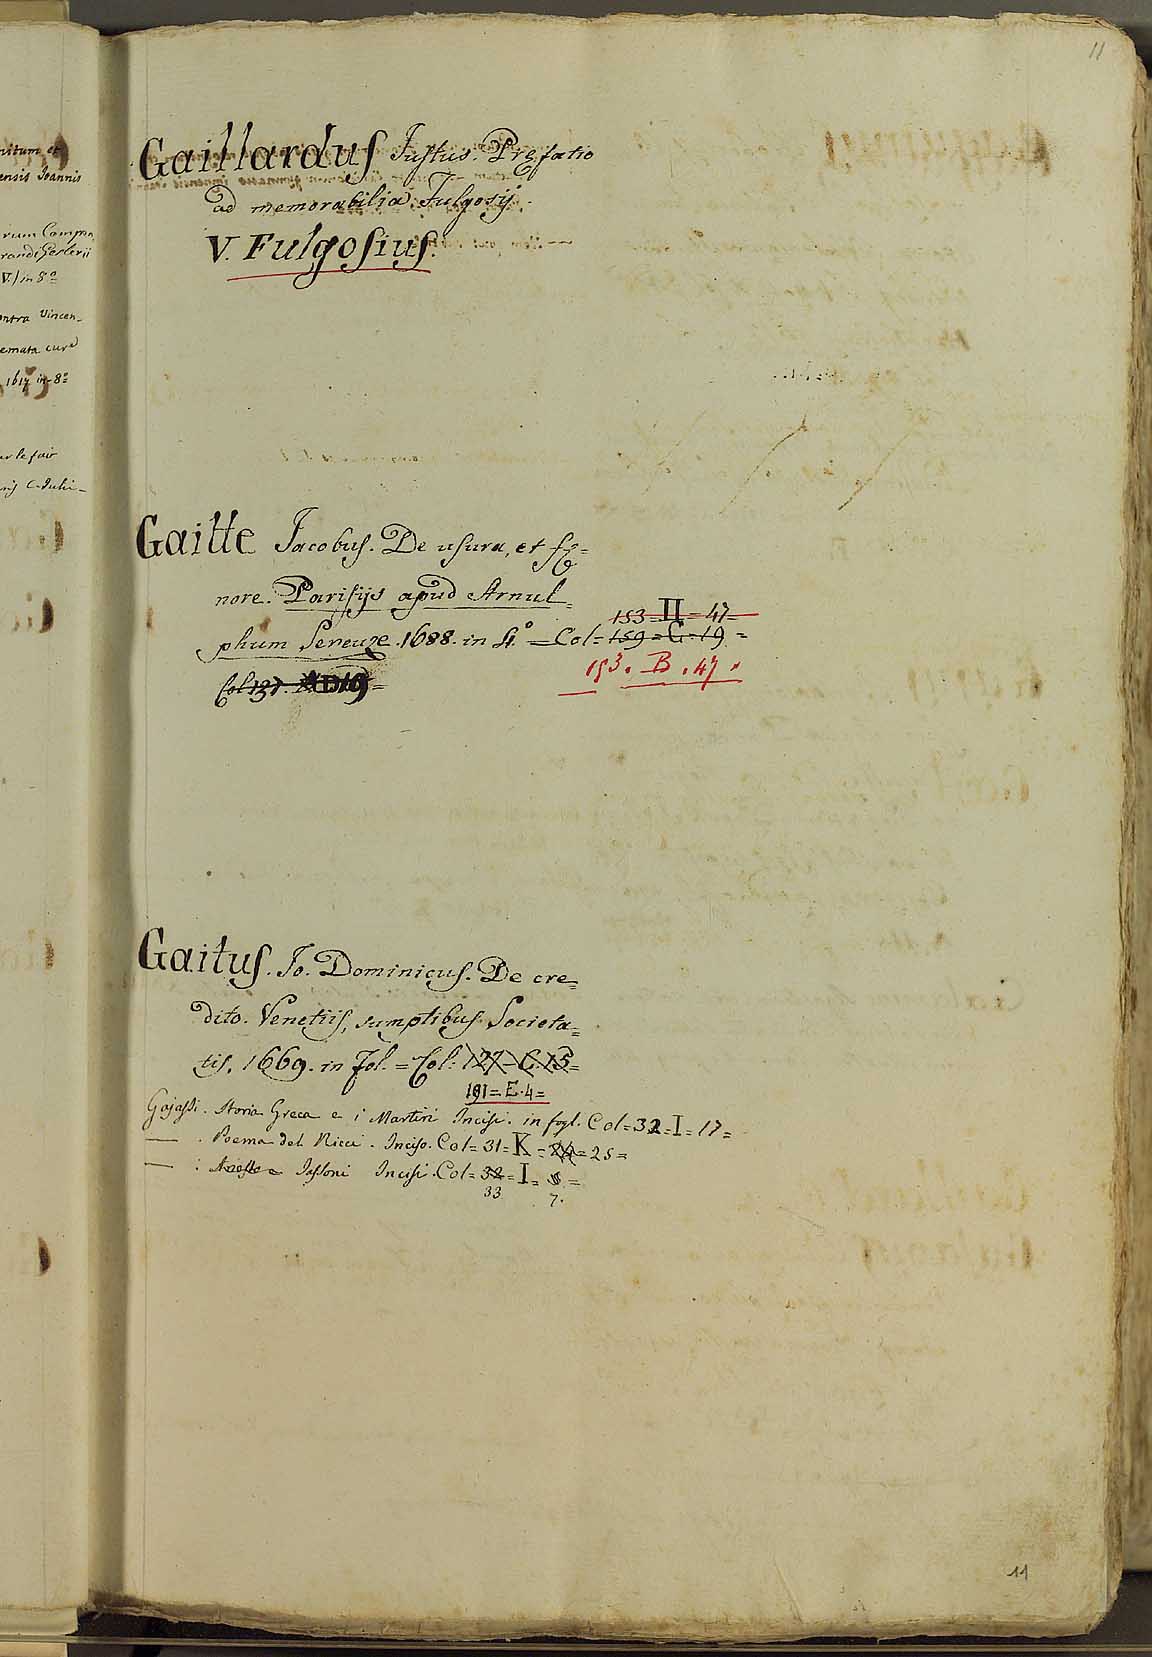 11
Gaillardus Justus. Prefatio
ad memorabilia Fulgosij.
V. Fulgosius.
Gaitte Jacobus. De usura, et fę=
nore. Parisijs apud Arnul=
phum Seneuze. 1688. in 4.º = Col= 159=C=19=
153=II=47=
153. B. 47.
Col 137.
Gaitus. Jo. Dominicus. De cre=
dito. Venetiis, sumptibus Societa=
tis. 1669. in Fol. = Col: 127=C.15=
191=E.4=
Gajassi. Storia Greca e i Martiri Incisi. in fogl. Col=32=I=17=
— . Poema del Ricci. Inciso. Col=31=K=24=25=
— : Incisi. Col=32=I=
33
7.
11
nitum et
ensis Joannis
rum
V.) in 8º
ontra Vincen-
emata cura
1617 in 8º